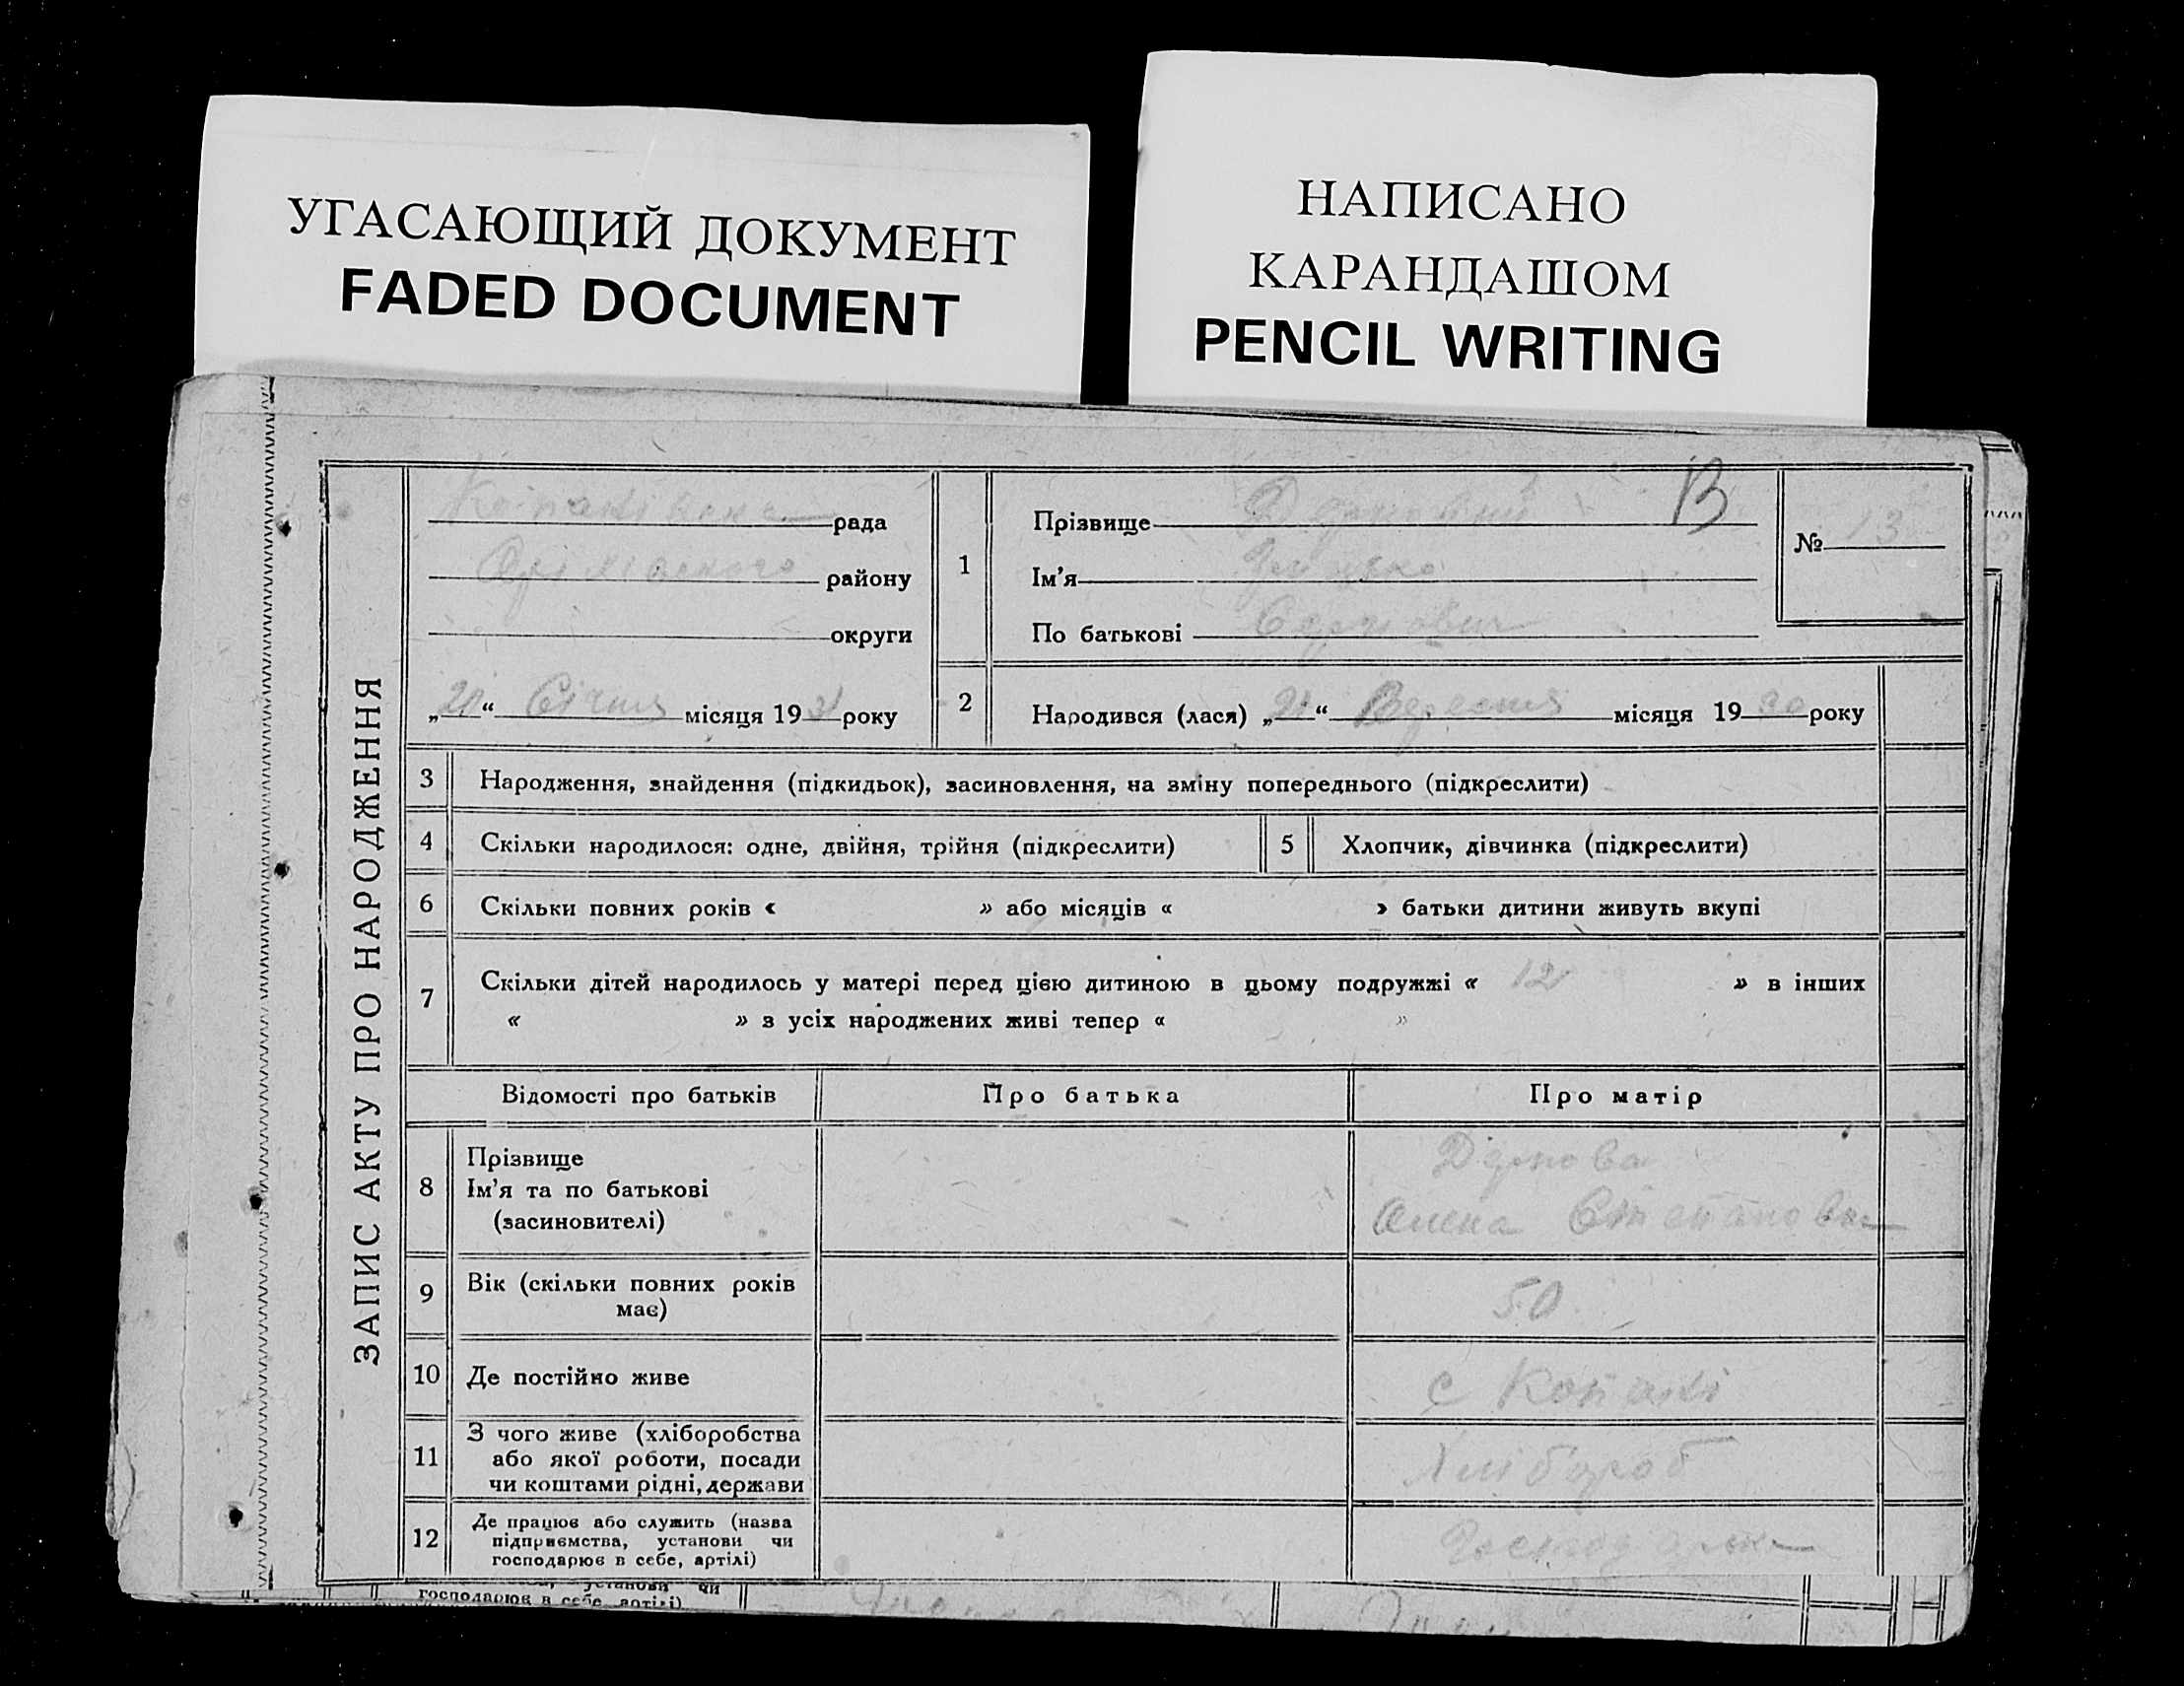 УГАСАЮЩИЙ ДОКУМЕНТ
FADED DOCUMENT
НАПИСАНО
КАРАНДАШОМ
PENCIL WRITING
ЗАПИС АКТУ ПРО НАРОДЖЕННЯ
Копанівська рада
району
округи
" " Січня місяця 1931 року
1
Прізвище В
Ім'я
По батькові
№ 13
2
Народився (лася) „ “ Вересня місяця 1930 року
3 Народження, знайдення (підкидьок), засиновлення, на зміну попереднього (підкреслити)
4 Скільки народилося: одне, двійня, трійня (підкреслити) 5 Хлопчик, дівчинка (підкреслити)
6 Скільки повних років « » або місяців « » батьки дитини живуть вкупі
7 Скільки дітей народилось у матері перед цією дитиною в цьому подружжі « 12 » в інших
« » з усіх народжених живі тепер « »
Відомості про батьків Про батька Про матір
8 Прізвище
Ім'я та по батькові
(засиновителі)
Олена Степановна
9 Вік (скільки повних років
має)
50
10 Де постійно живе с Копані
11 З чого живе (хліборобства
або якої роботи, посади
чи коштами рідні, держави
Хлібороб
12 Де працює або служить (назва
підприємства, установи чи
господарює в себе, артілі)
установи чи
господарює в себе, артілі)